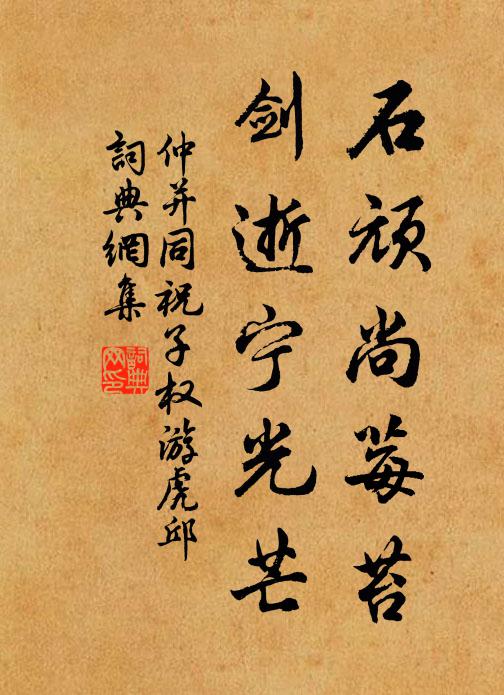 石顽尚莓苔
剑逝宁光芒
仲并同祝子权游虎邱
詞典網集
詞典網印